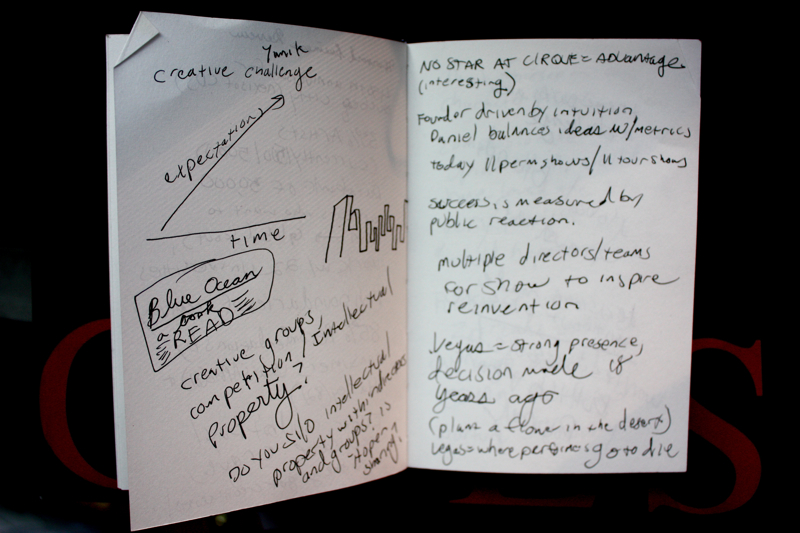 Yunik
creative challenge
expectations
time
Blue Ocean
a book
READ
creative groups,
competition / Intellectual
Property?
Do you silo intellectual
property within directors
and groups? is
it open
sharing?
NO STAR AT CIRQUE = ADVantage.
(interesting)
Founder driven by intuition
Daniel balances ideas w/metrics
today 11 perm shows / 11 tour shows
success is measured by
public reaction.
multiple directors/teams
for show to inspire
reinvention
Vegas = strong presence,
decision made 18
years ago
(plant a flower in the desert)
Vegas = where performers go to die